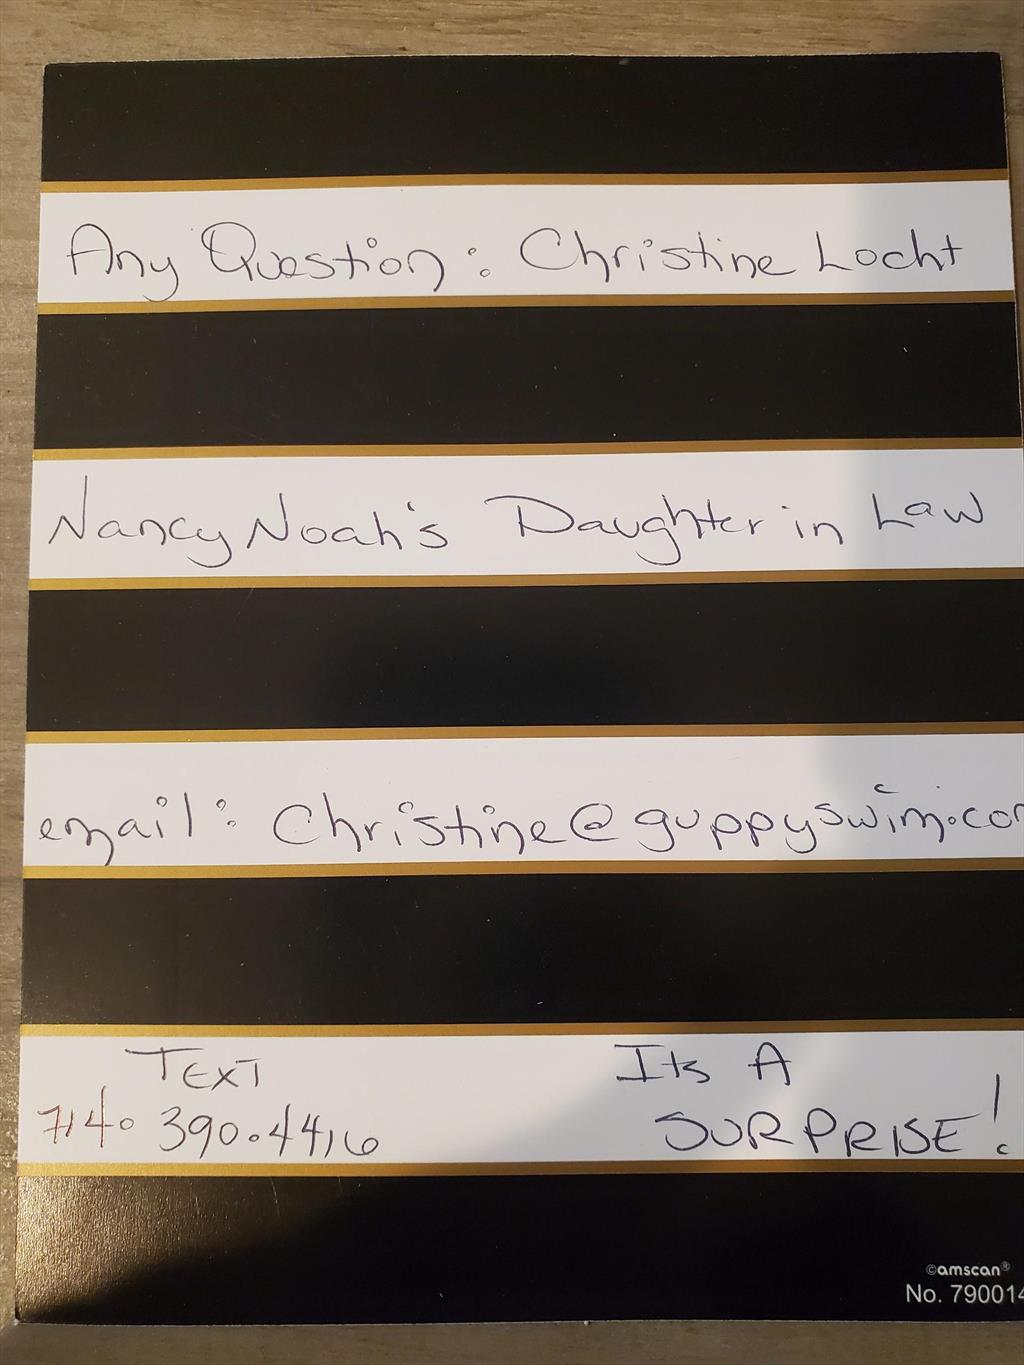 Any Question: Christine Locht
Nancy Noah's Daughter in Law
email: Christine@guppyswim.co
TEXT
714. 390.4416
Its A
SURPRISE!
©amscan®
No. 790014